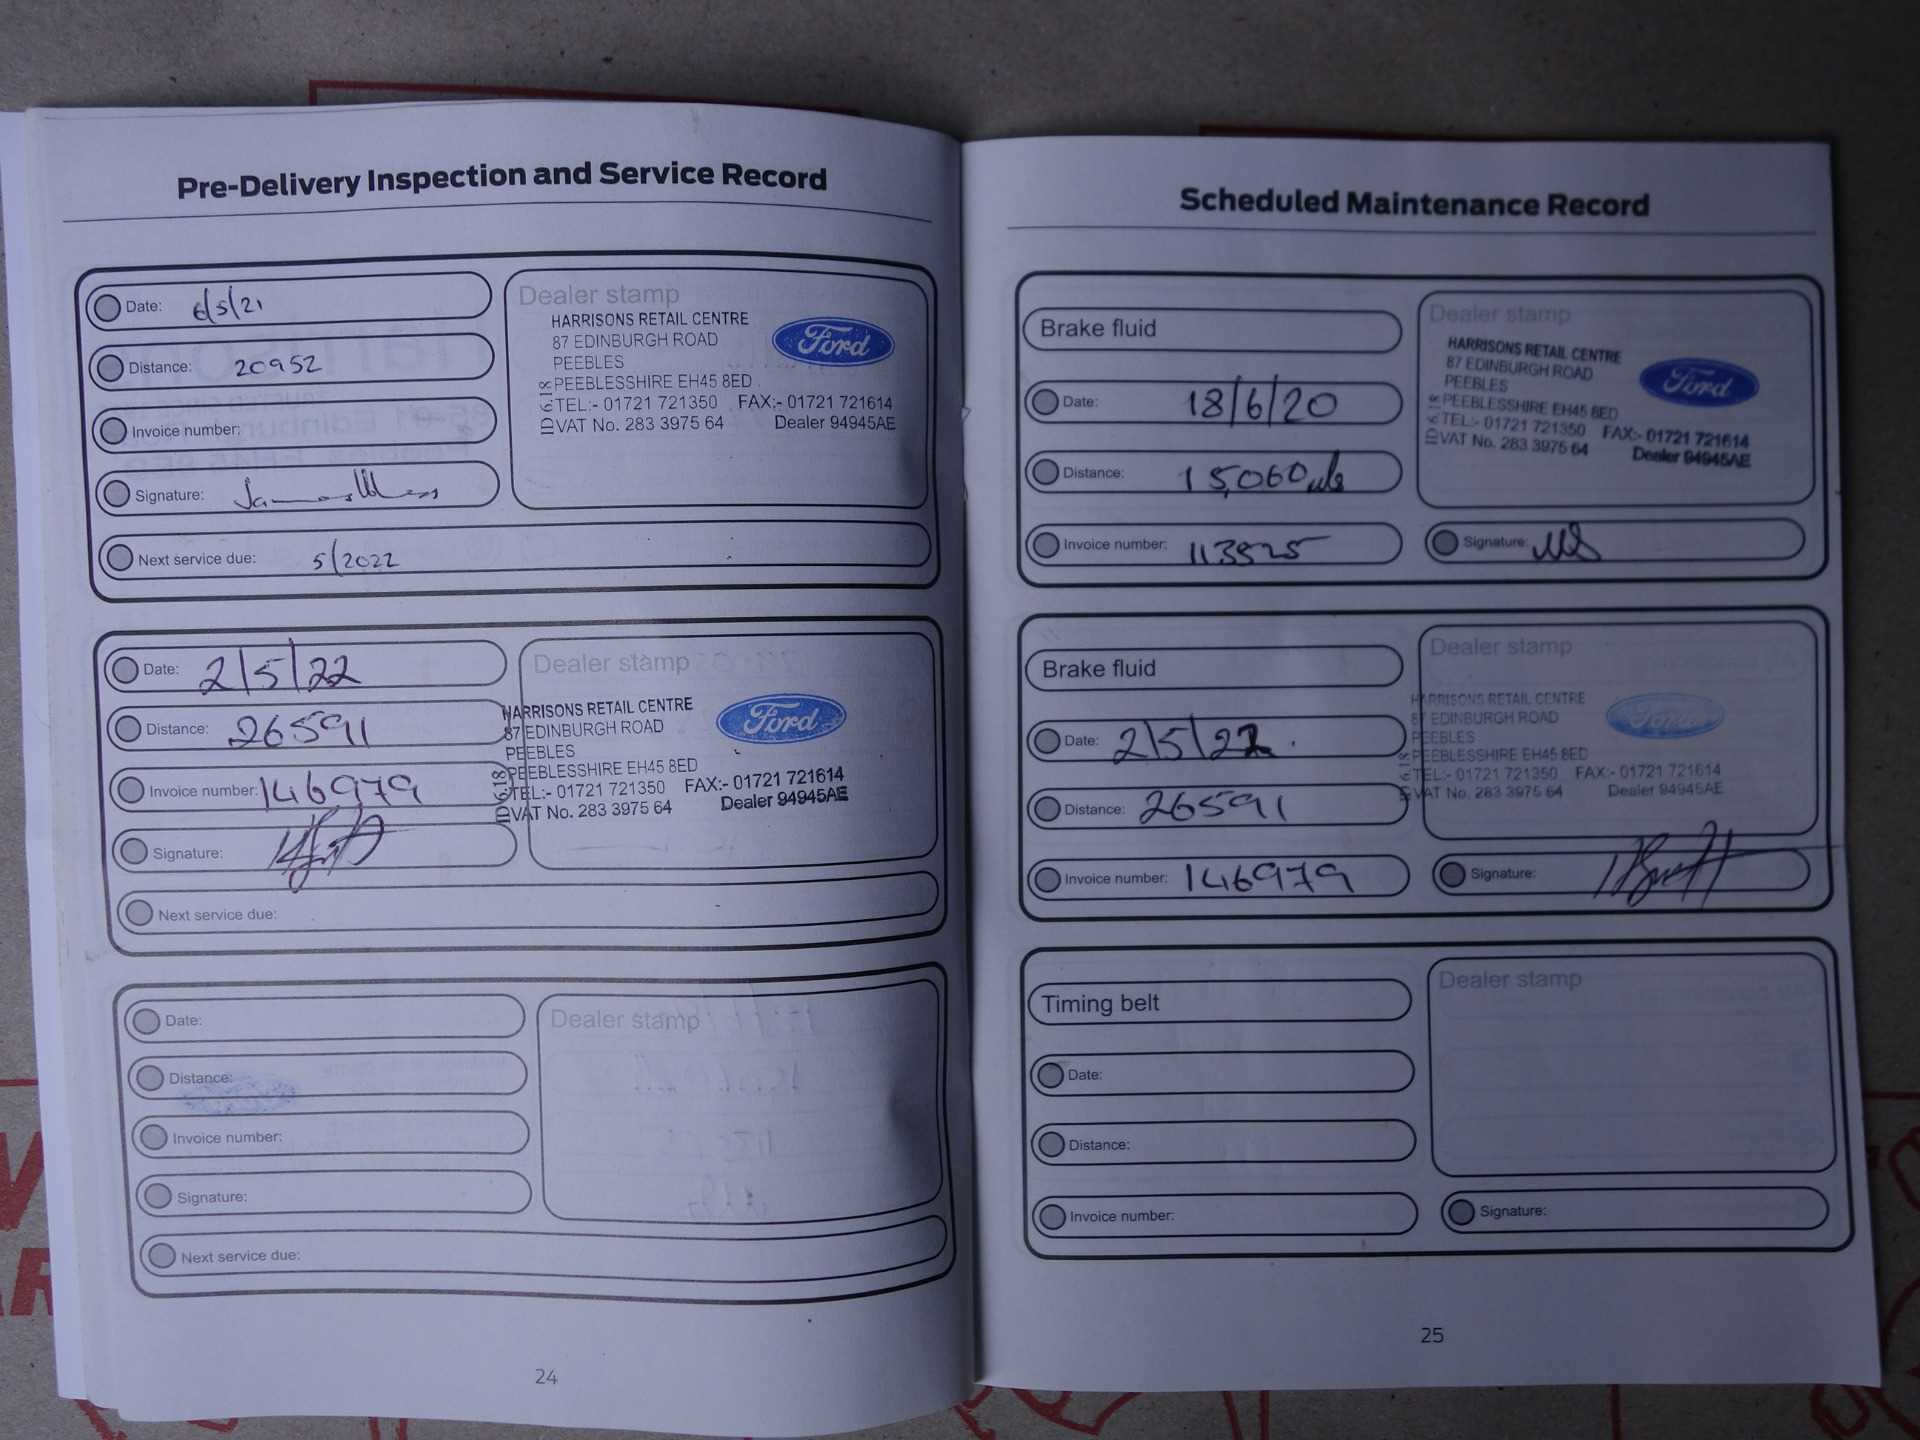 Pre-Delivery Inspection and Service Record
Date: 6/5/21
Distance: 20952
Invoice number:
Signature:
Next service due: 5/2022
Dealer stamp
HARRISONS RETAIL CENTRE
87 EDINBURGH ROAD
PEEBLES
PEEBLESSHIRE EH45 8ED
TEL:- 01721 721350 FAX:- 01721 721614
VAT No. 283 3975 64 Dealer 94945AE
Ford
Date: 2/5/22
Distance: 26591
Invoice number: 146979
Signature:
Next service due:
Dealer stamp
HARRISONS RETAIL CENTRE
87 EDINBURGH ROAD
PEEBLES
PEEBLESSHIRE EH45 8ED
TEL:- 01721 721350 FAX:- 01721 721614
VAT No. 283 3975 64 Dealer 94945AE
Ford
Date:
Distance:
Invoice number:
Signature:
Next service due:
Dealer stamp
24
Scheduled Maintenance Record
Brake fluid
Date: 18/6/20
Distance: 15,060
Invoice number: 113525
Dealer stamp
HARRISONS RETAIL CENTRE
87 EDINBURGH ROAD
PEEBLES
PEEBLESSHIRE EH45 8ED
TEL:- 01721 721350 FAX:- 01721 721614
VAT No. 283 3975 64 Dealer 94945AE
Ford
Signature:
Brake fluid
Date: 2/5/22.
Distance: 26591
Invoice number: 146979
Dealer stamp
HARRISONS RETAIL CENTRE
87 EDINBURGH ROAD
PEEBLES
PEEBLESSHIRE EH45 8ED
TEL:- 01721 721350 FAX:- 01721 721614
VAT No. 283 3975 64 Dealer 94945AE
Ford
Signature:
Timing belt
Date:
Distance:
Invoice number:
Dealer stamp
Signature:
25